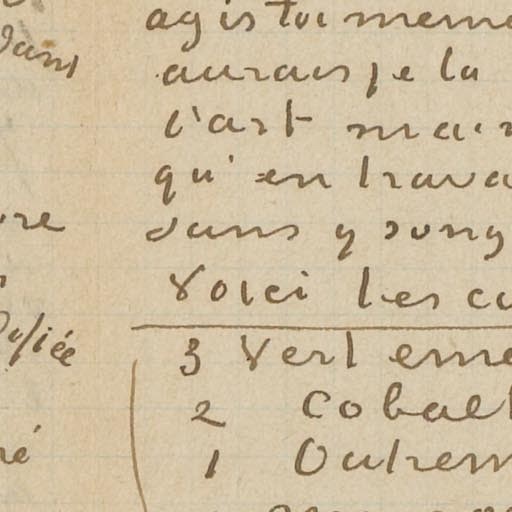 dans
agis toi meme
aurais je la
l'art mais
qu'en trava
re
sans y song
Voici les co
3 Vert eme
2 Cobalt
1 Outrem